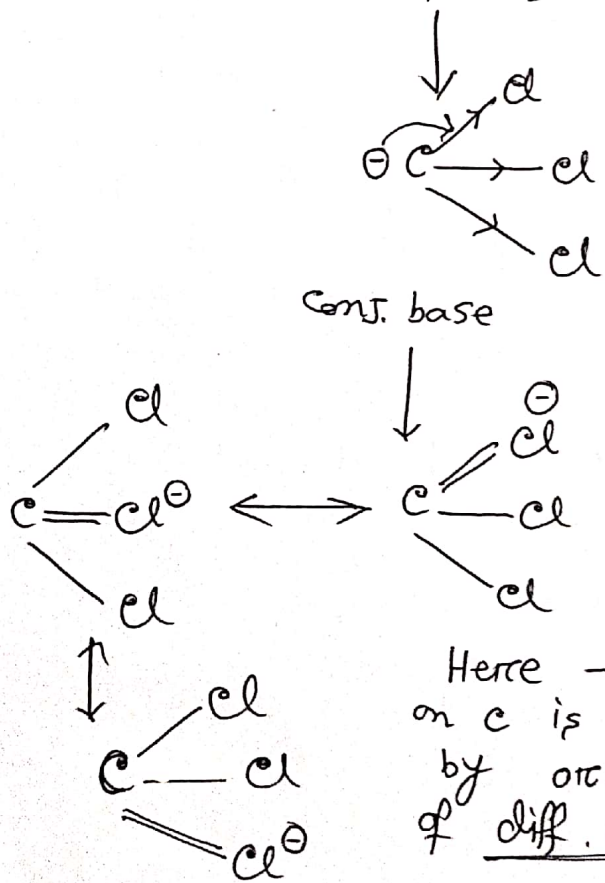 Cl
⊖ C Cl
Cl
Conj. base
Cl
C = Cl⊖
Cl
⊖
Cl
C Cl
Cl
Cl
C Cl
Cl⊖
Here -
on c is
by
of diff.